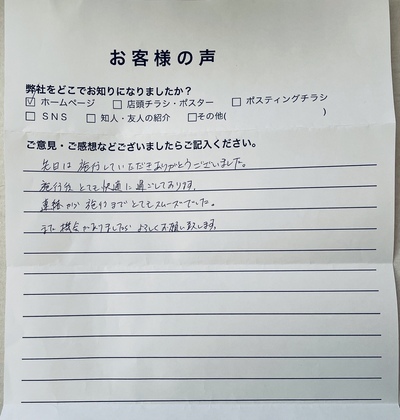 お客様の声
弊社をどこでお知りになりましたか?
☑ ホームページ □ 店頭チラシ・ポスター □ ポスティングチラシ
□ SNS □ 知人・友人の紹介 □その他( )
ご意見・ご感想などございましたらご記入ください。
先日は施行していただきありがとうございました。
施行後とても快適に過ごしております。
連絡から施行までとてもスムーズでした。
また機会がありましたらよろしくお願い致します。